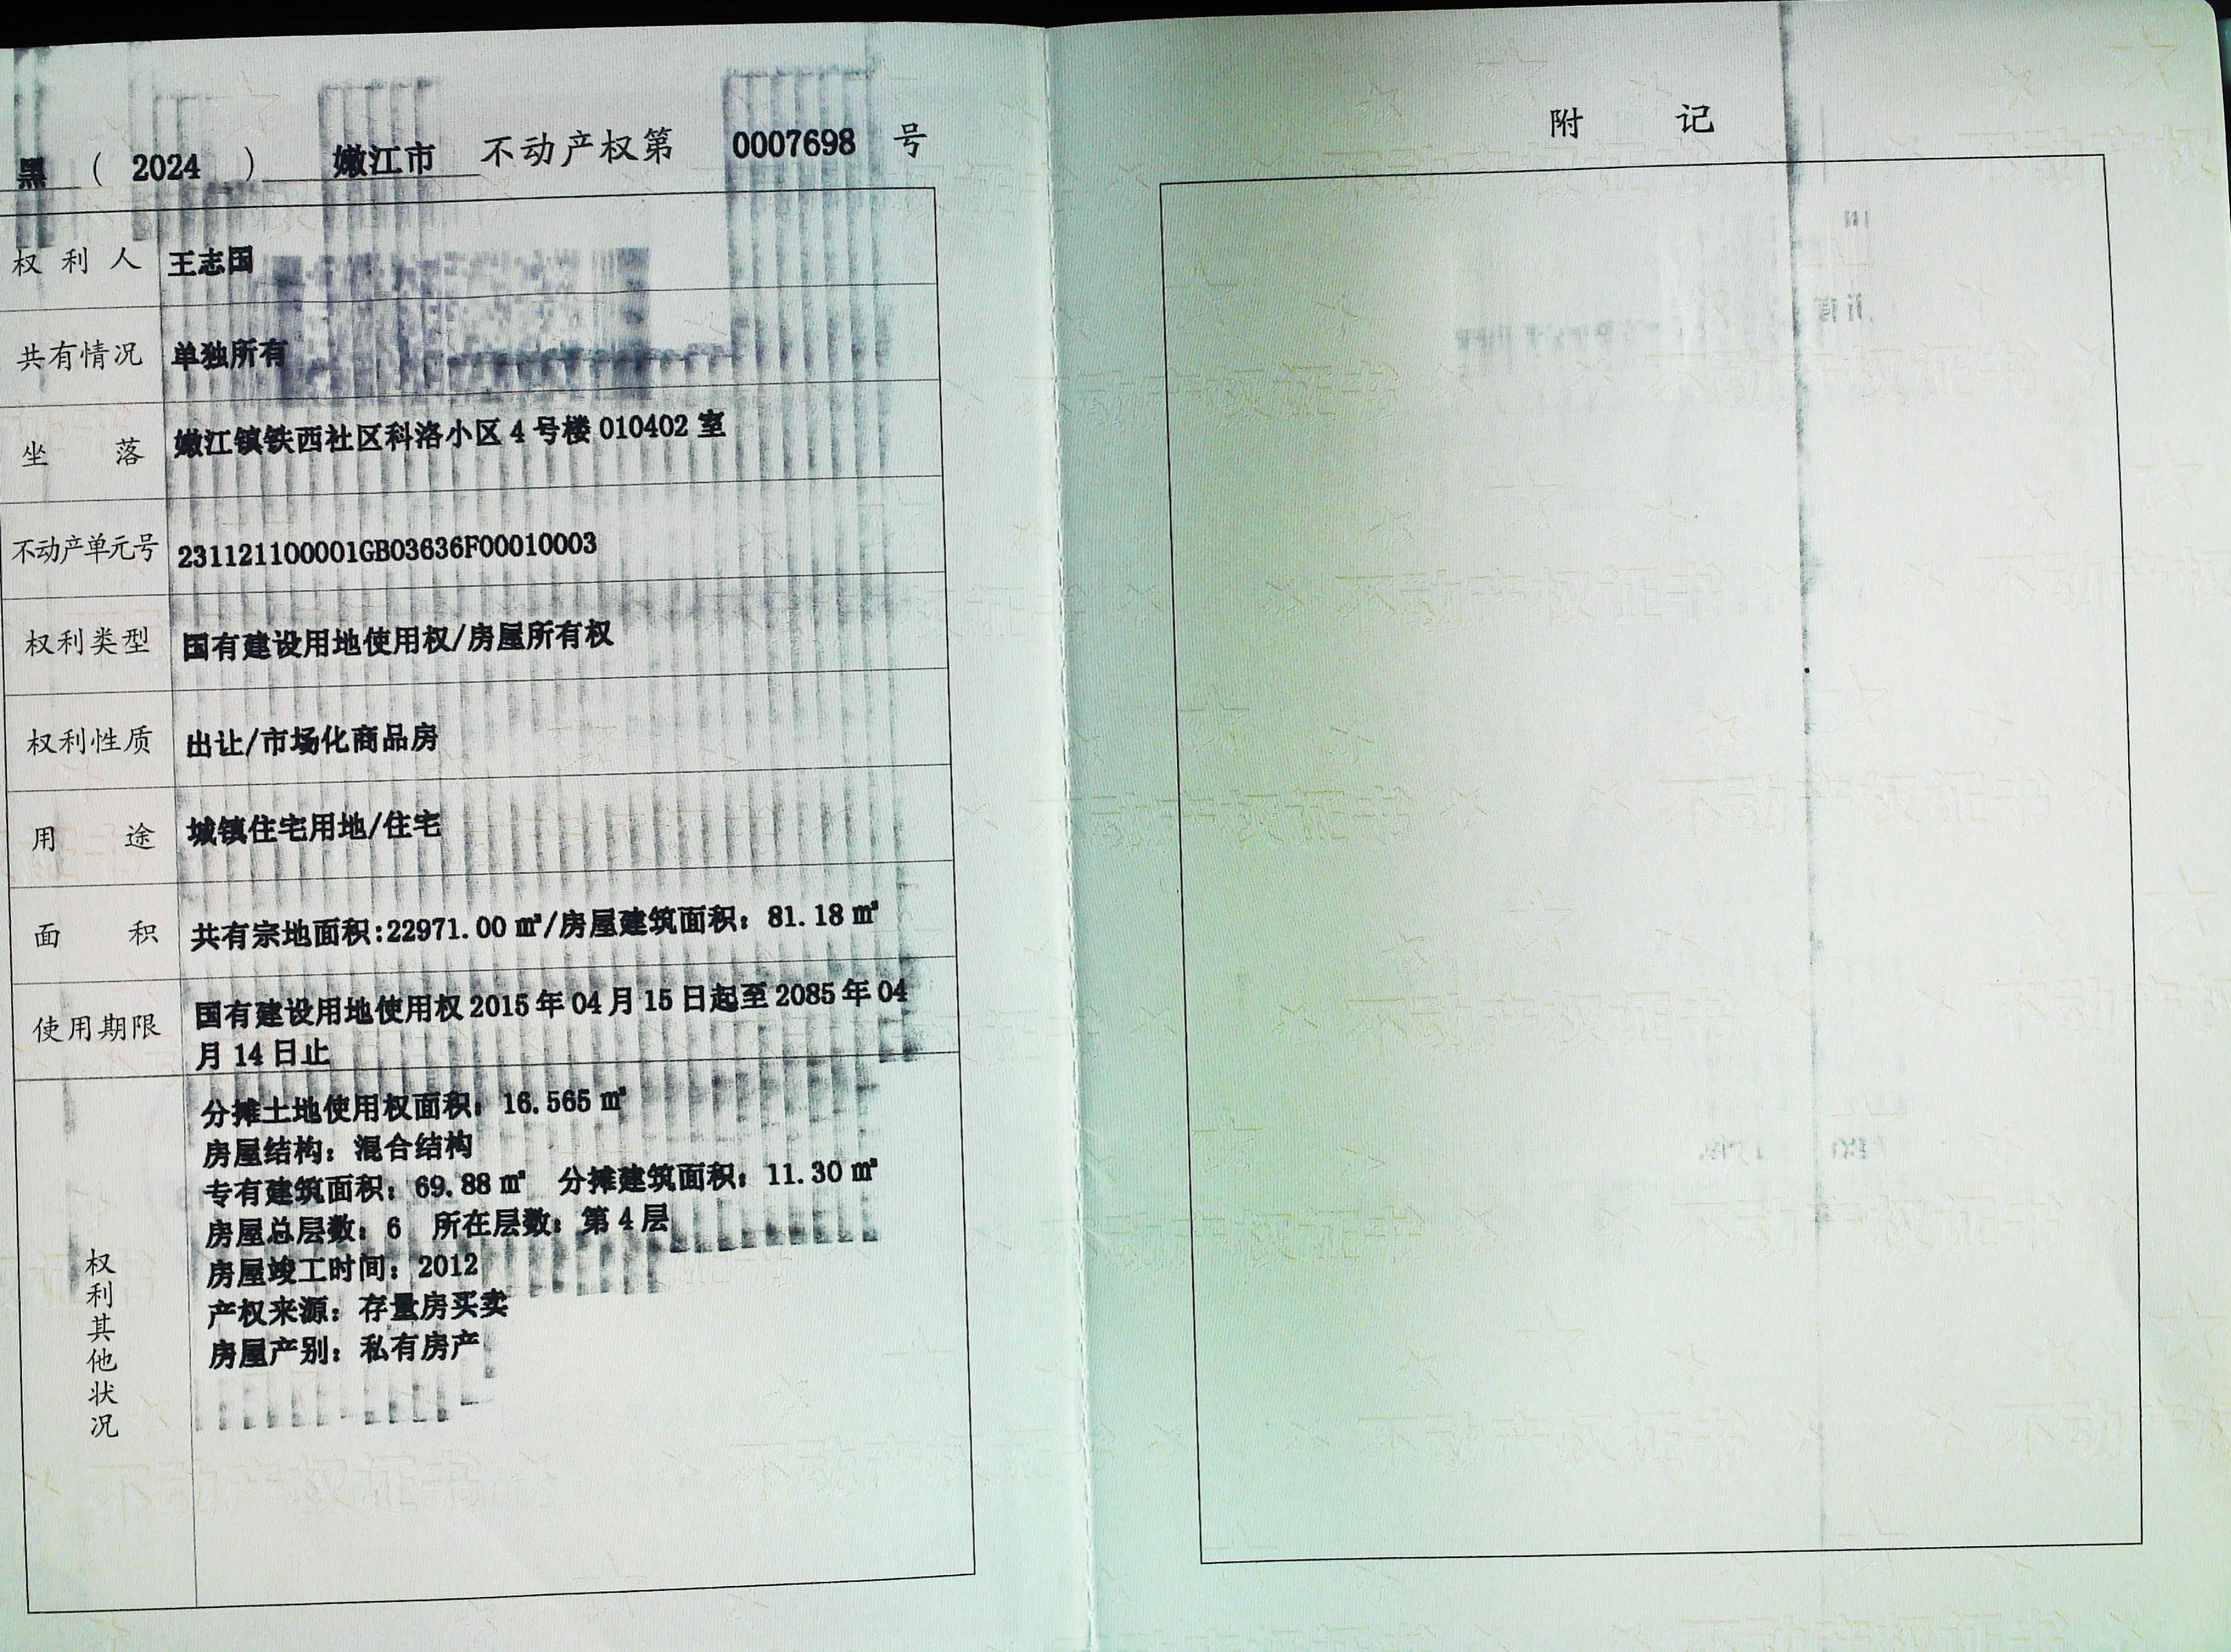 黑（2024）嫩江市 不动产权第 0007698 号
权利人 王志国
共有情况 单独所有
坐落 嫩江镇铁西社区科洛小区 4 号楼 010402 室
不动产单元号 231121100001GB03636F00010003
权利类型 国有建设用地使用权/房屋所有权
权利性质 出让/市场化商品房
用途 城镇住宅用地/住宅
面积 共有宗地面积:22971.00 ㎡/房屋建筑面积：81.18 ㎡
使用期限 国有建设用地使用权 2015 年 04 月 15 日起至 2085 年 04
月 14 日止
权利其他状况
分摊土地使用权面积：16.565 ㎡
房屋结构：混合结构
专有建筑面积：69.88 ㎡ 分摊建筑面积：11.30 ㎡
房屋总层数：6 所在层数：第 4 层
房屋竣工时间：2012
产权来源：存量房买卖
房屋产别：私有房产
附记